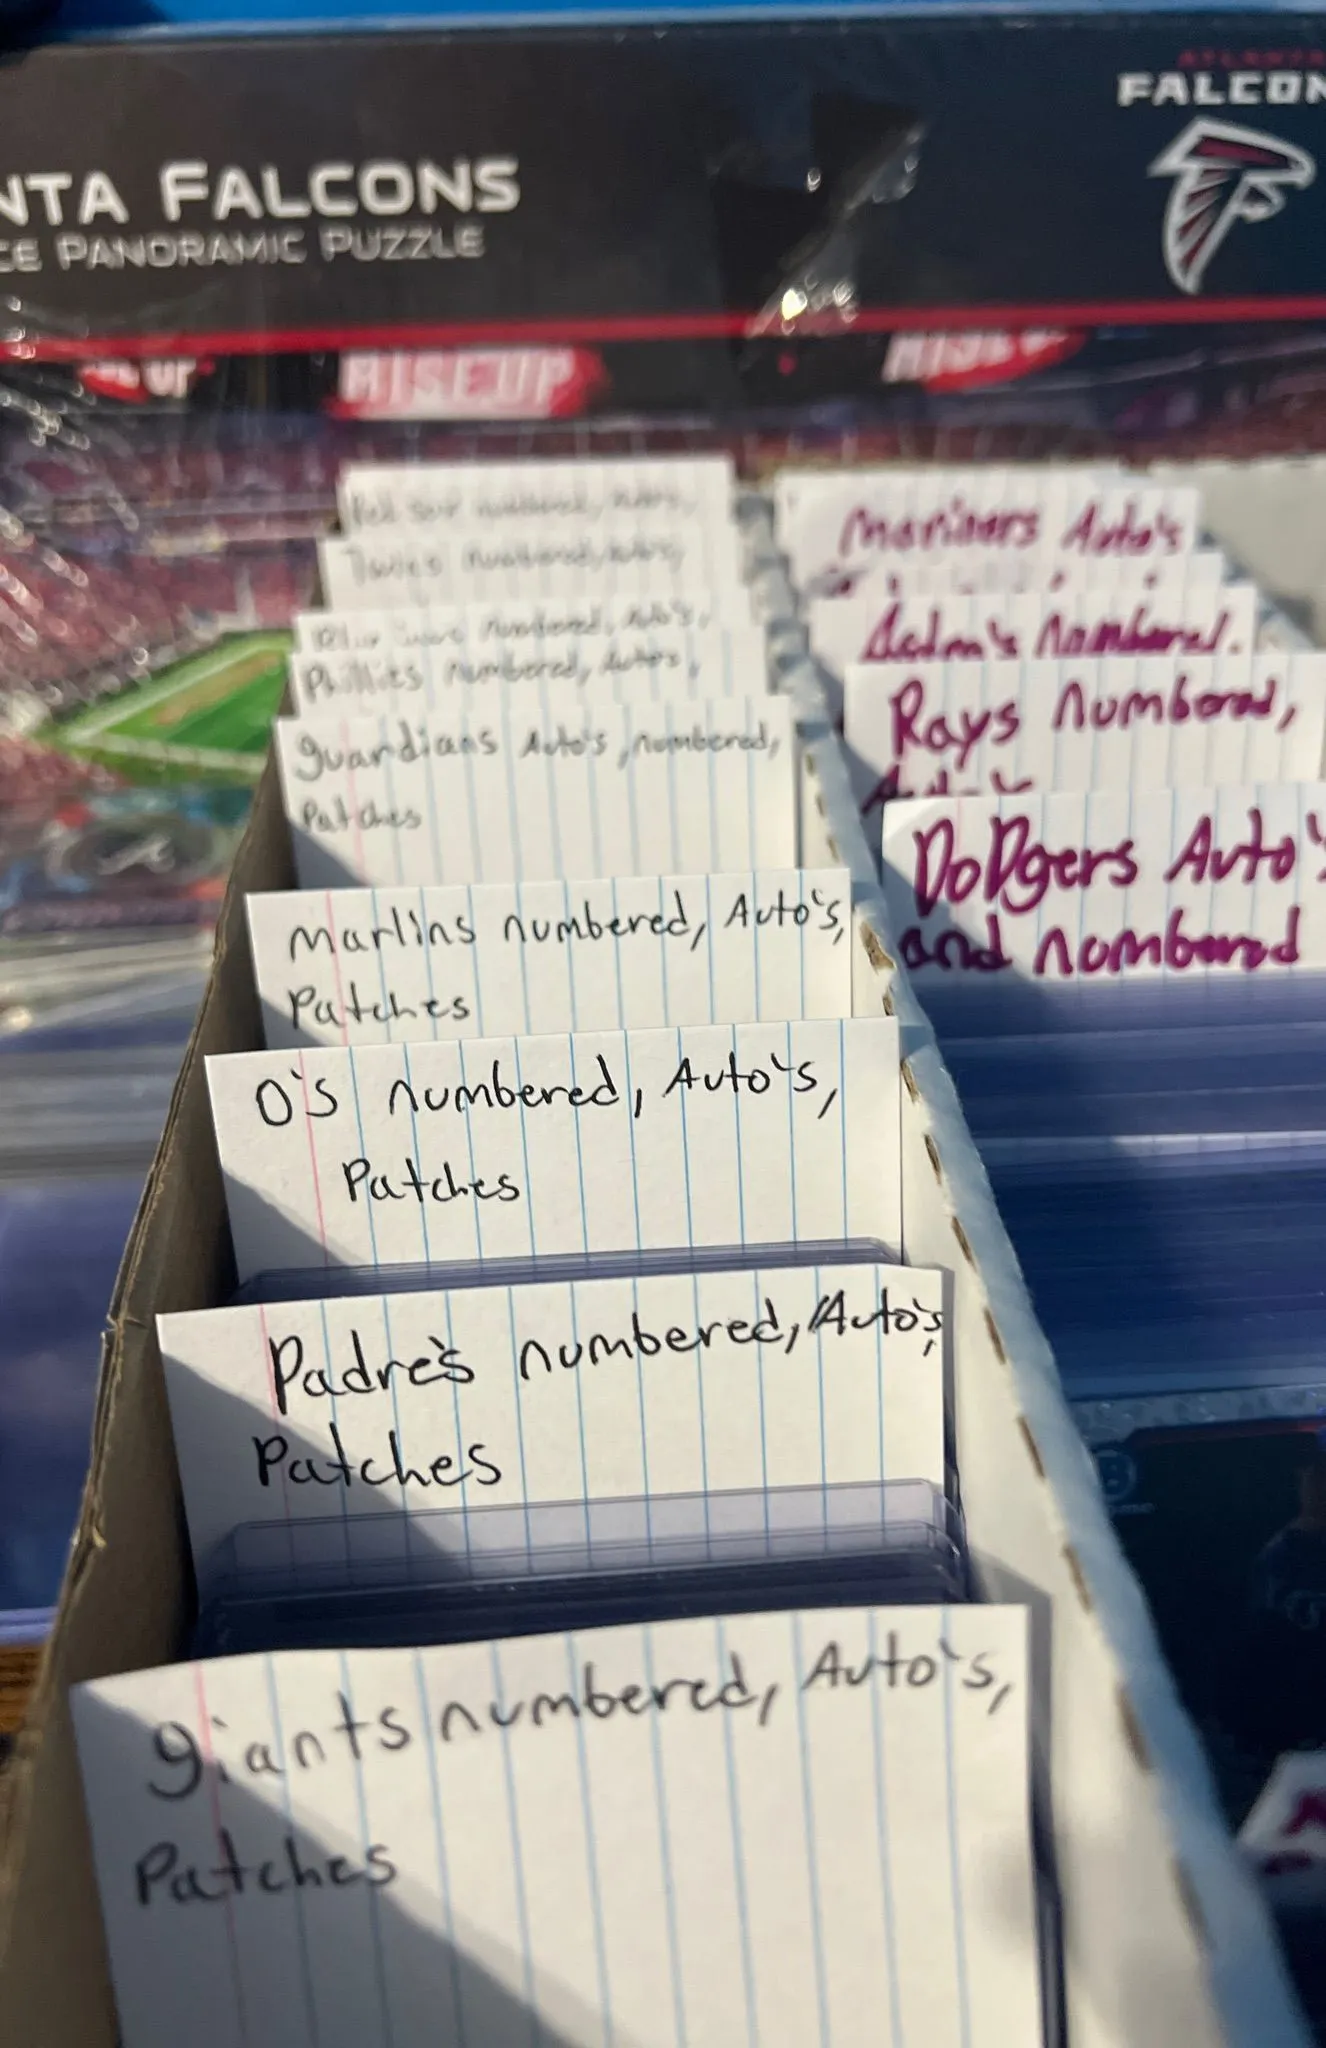 ATLANTA
FALCON
NTA FALCONS
CE PANORAMIC PUZZLE
UP
RISE UP
RISE
Red Sox numbered, Auto's,
numbered, Auto's,
Blue Jays numbered, Auto's,
Phillies numbered, Auto's,
guardians Auto's, numbered,
Patches
Marlins numbered, Auto's,
Patches
O's numbered, Auto's,
Patches
Padre's numbered, Auto's,
Patches
giants numbered, Auto's,
Patches
Mariners Auto's
numbered.
Rays numbered,
DoDgers Auto's
and numbered